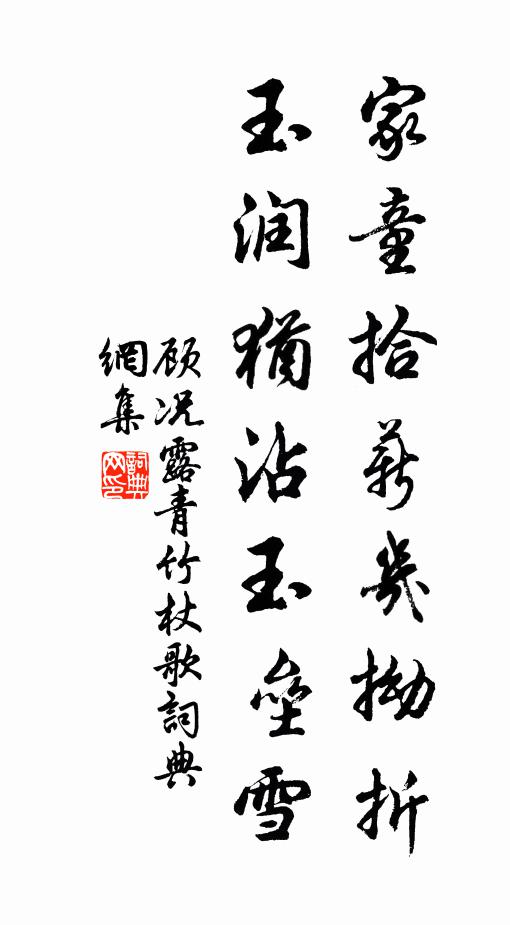 家童拾薪幾拗折
玉润猶沾玉壘雪
顾况露青竹杖歌詞典
網集
詞典网印